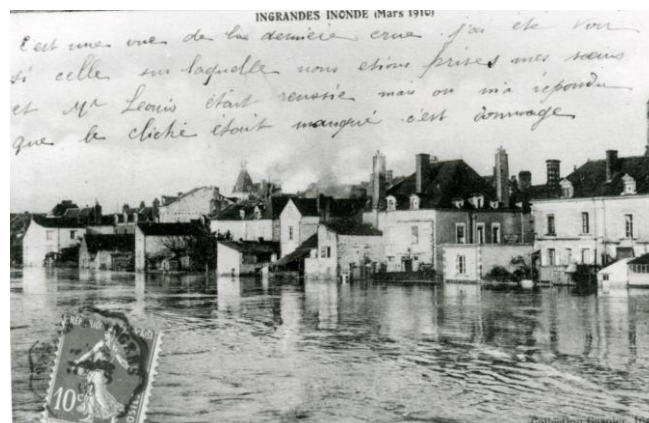 INGRANDES INONDE (Mars 1910)
C'est une vue de la dernière crue j'ai été voir
si celle sur laquelle nous etions prises mes sœurs
et Mr Leonis était reussie mais on m'a répondu
que le cliché était manqué c'est dommage
10c
Collection